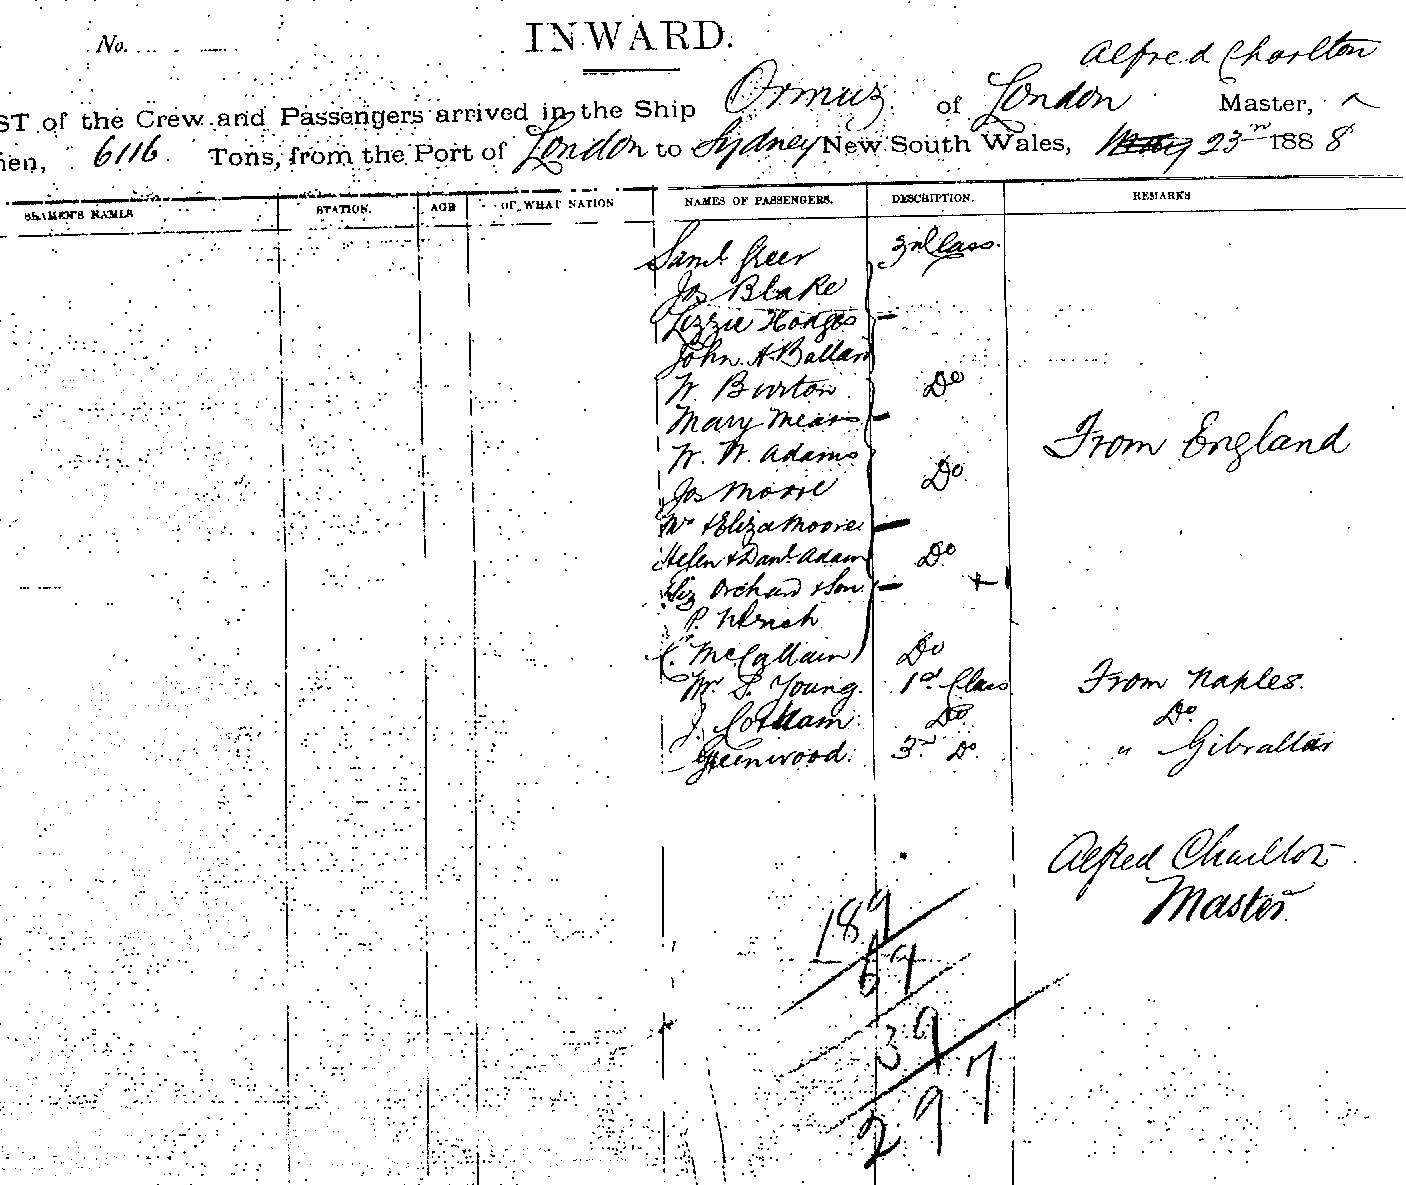 No.
INWARD.
Alfred Charlton
ST of the Crew and Passengers arrived in the Ship Ormuz of London Master,
men, 6116 Tons, from the Port of London to Sydney New South Wales, May 23rd 1888
SEAMEN'S NAMES STATION. AGE OF WHAT NATION NAMES OF PASSENGERS. DESCRIPTION. REMARKS
Saml. Greer 3rd Class.
Jos Blake
Lizzie Hodges
John A Ballan
W. Burton Do
Mary Mears
W. W. Adams From England
Jos Moore Do
Mrs & Eliza Moore
Helen & Danl. Adam Do
Eliz Orchard & Son
P. 
McCallum Do
Mr. S. Young. 1st. Class From Naples.
J. Cottam Do Do
Greenwood. 3rd Do. " Gibraltar
Alfred Charlton
Master.
189
64
39
297